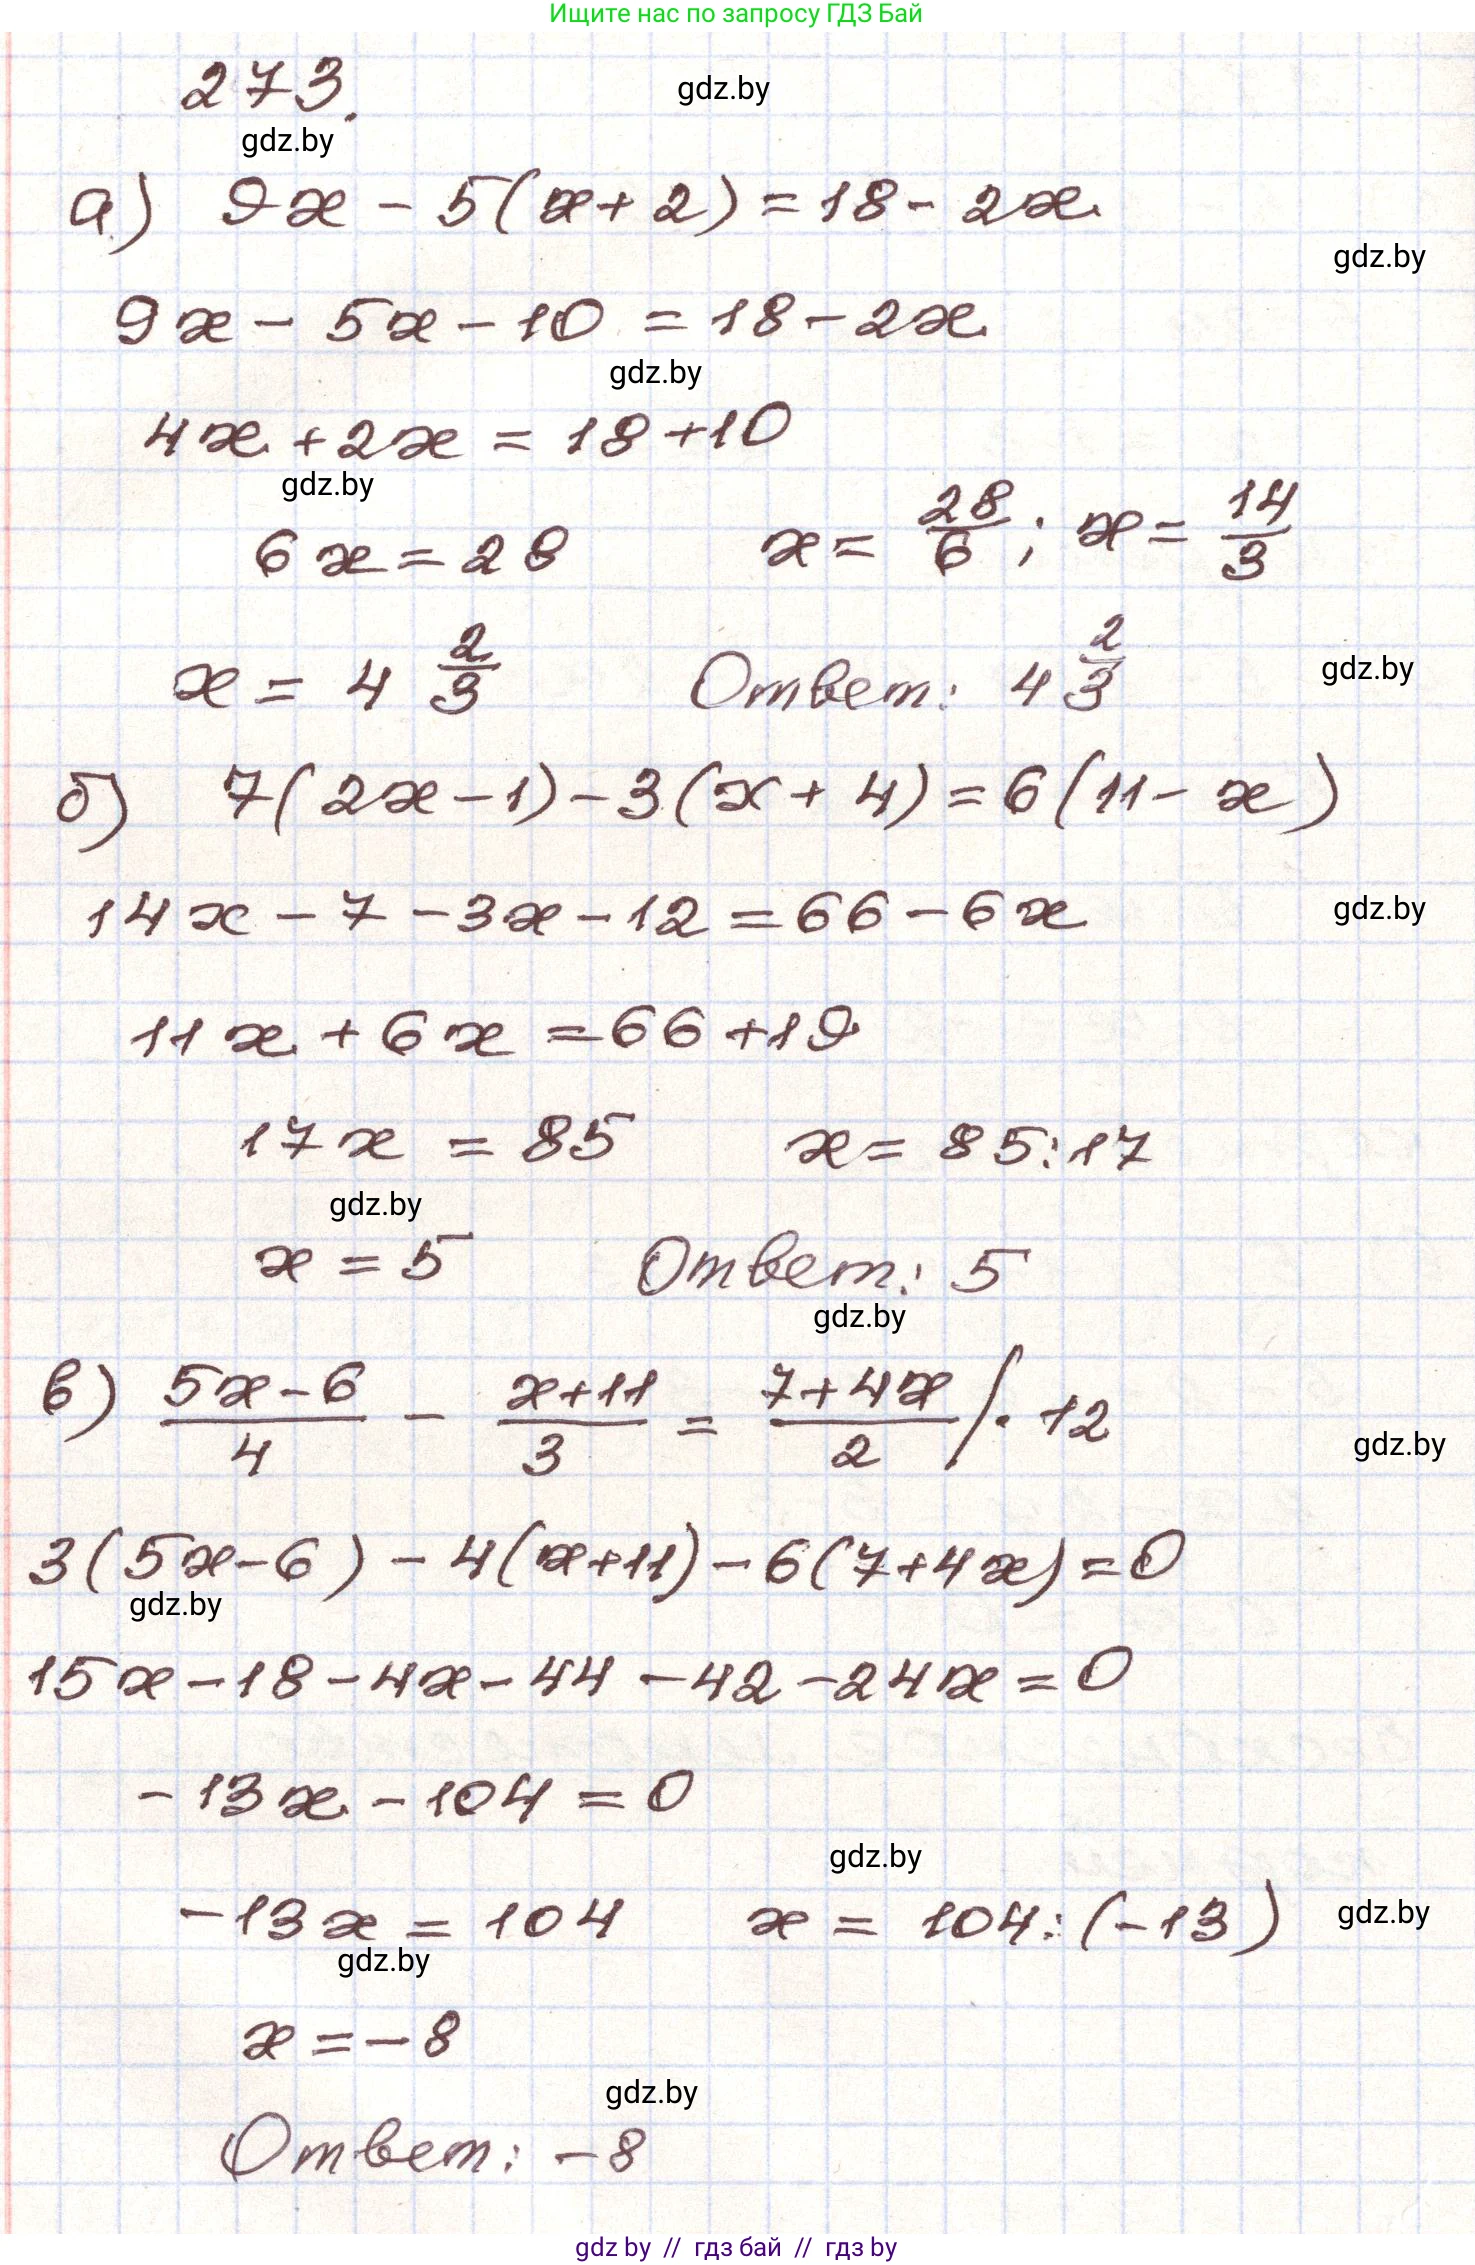 Ищите нас по запросу ГДЗ Бай
273.
gdz.by
gdz.by
а) 9x - 5(x + 2) = 18 - 2x
gdz.by
9x - 5x - 10 = 18 - 2x
gdz.by
4x + 2x = 18 + 10
gdz.by
6x = 28 x = 28/6; x = 14/3
x = 4 2/3 Ответ: 4 2/3
gdz.by
б) 7(2x - 1) - 3(x + 4) = 6(11 - x)
14x - 7 - 3x - 12 = 66 - 6x
gdz.by
11x + 6x = 66 + 19
17x = 85 x = 85:17
gdz.by
x = 5 Ответ: 5
gdz.by
в) (5x - 6)/4 - (x + 11)/3 = (7 + 4x)/2 / · 12
gdz.by
3(5x - 6) - 4(x + 11) - 6(7 + 4x) = 0
gdz.by
15x - 18 - 4x - 44 - 42 - 24x = 0
-13x - 104 = 0
gdz.by
-13x = 104 x = 104:(-13)
gdz.by
gdz.by
x = -8
gdz.by
Ответ: -8
gdz by // гдз бай // гдз by